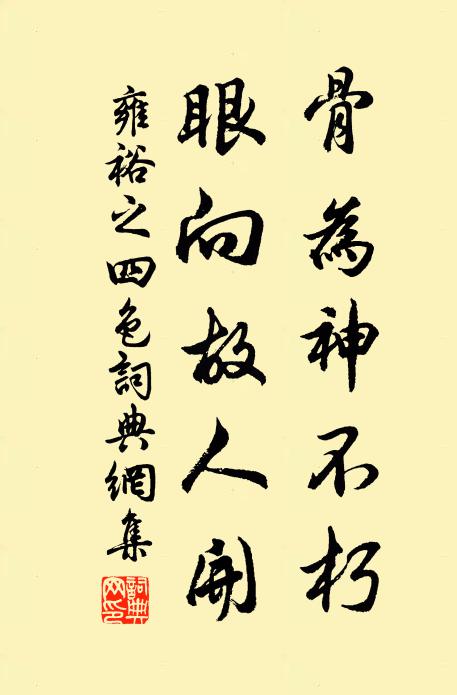 骨為神不朽
眼向故人開
雍裕之四色詞典網集
詞典
网印